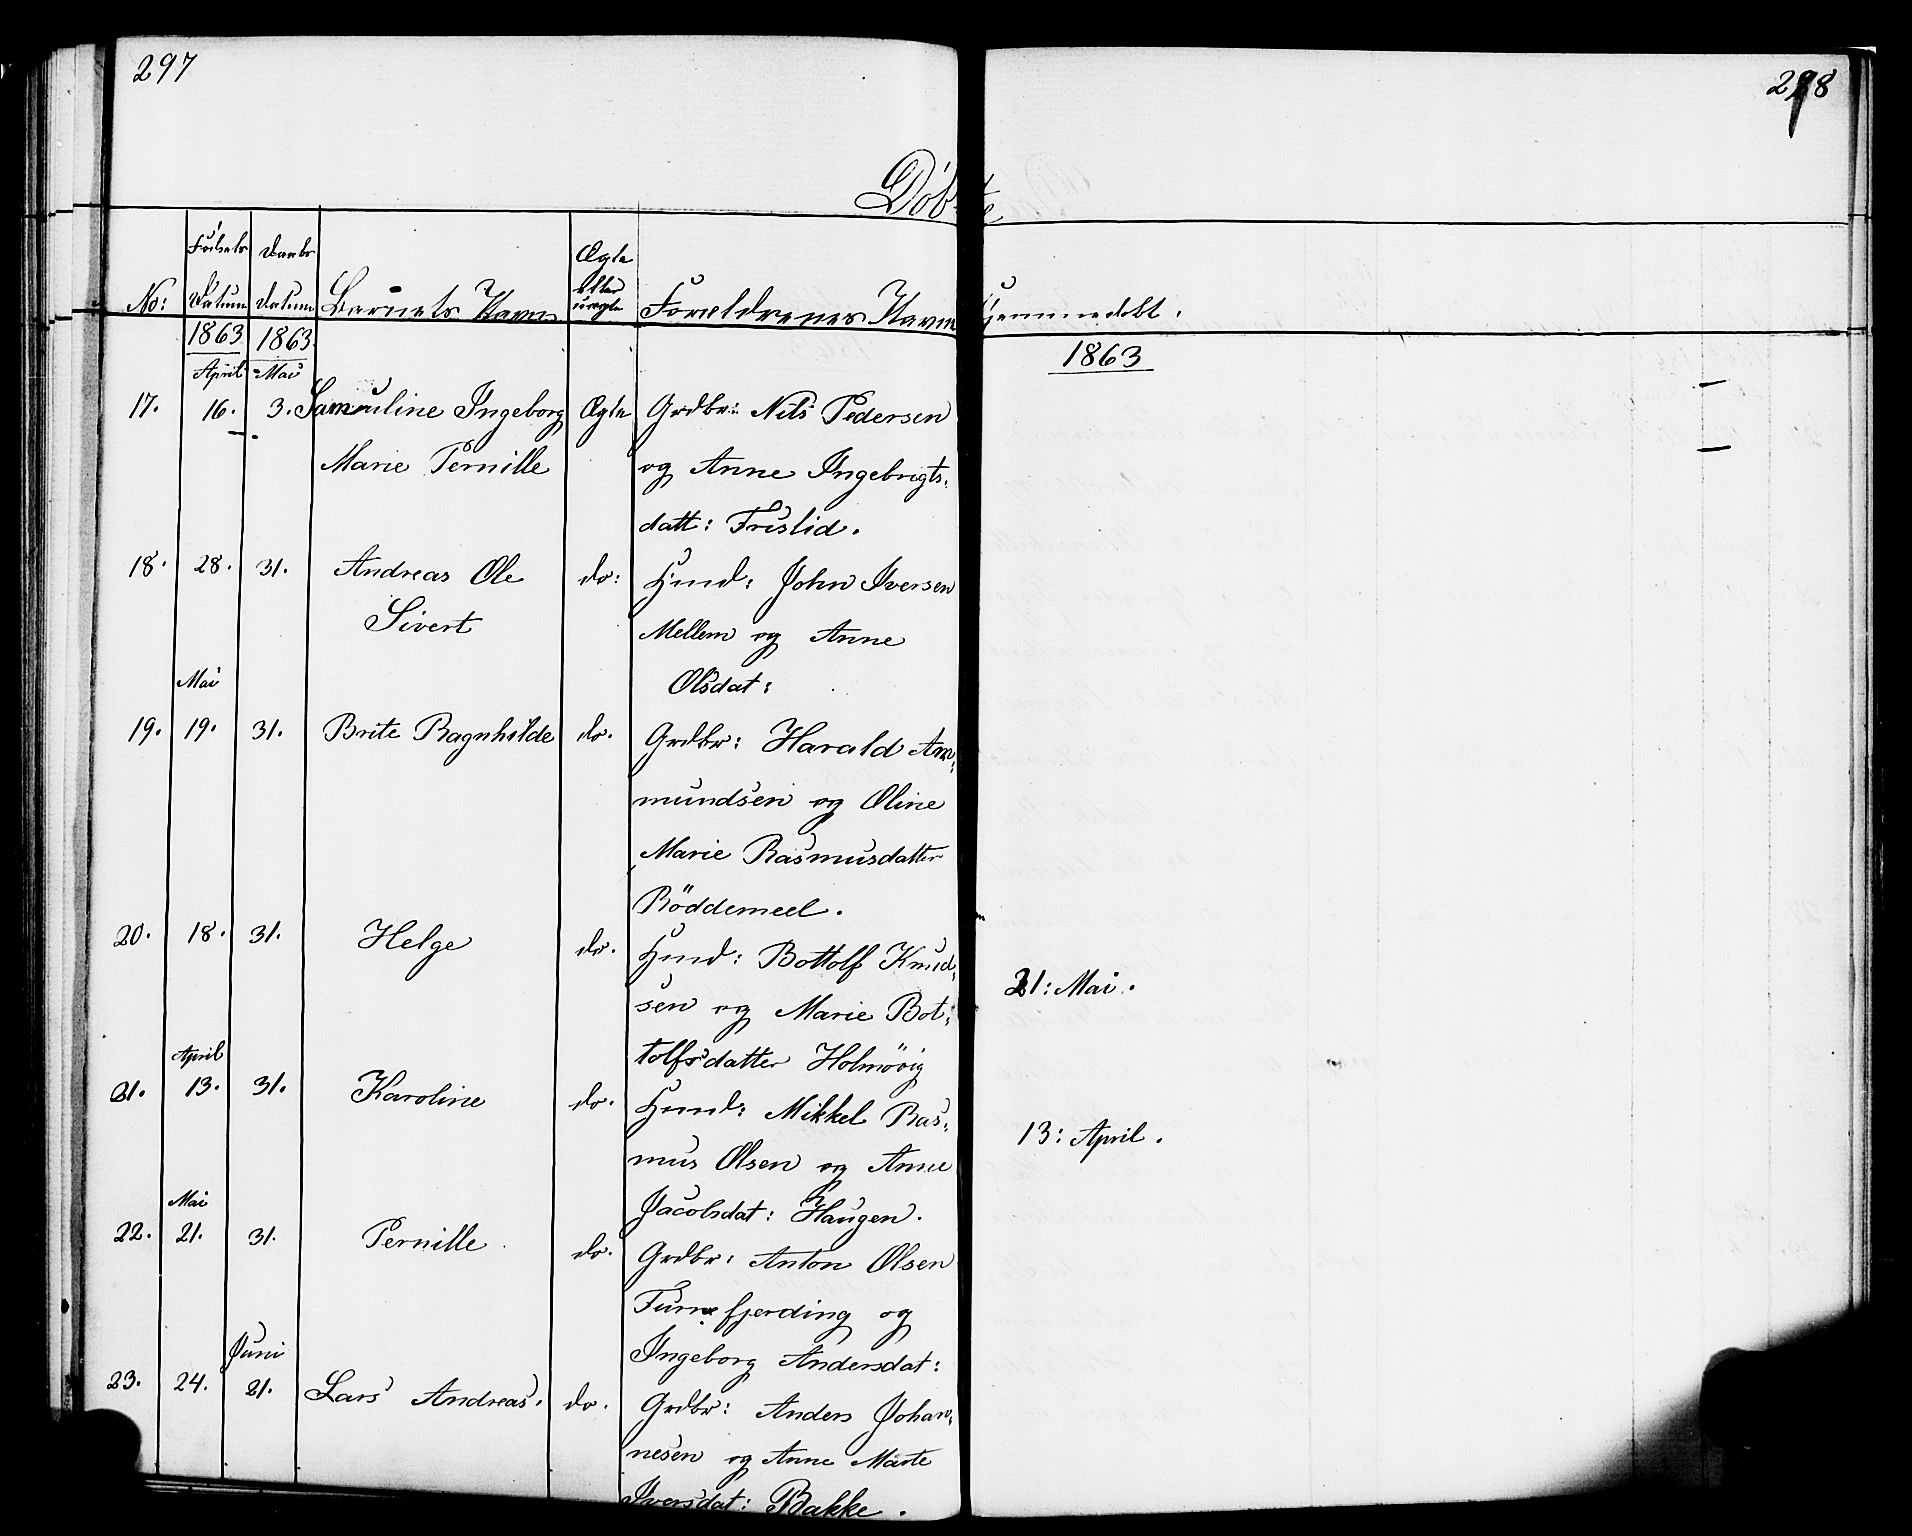 297
298
Døbte
No:
Fødsels Datum
Daabs Datum
Barnets Navn
Ægte eller uægte
Forældrenes Navn
Hjemmedøbt.
1863
1863
1863
April
Mai
17. 16. 3. Samuline Ingeborg Ægte Grdbr: Nils Pedersen
Marie Pernille og Anne Ingebrigts-
datt: Frislid.
18. 28. 31. Andreas Ole do: Hmd: John Iversen
Sivert Mellem og Anne
Mai Olsdat:
19. 19. 31. Brite Ragnhilde do. Grdbr: Harald Am-
mundsen og Oline
Marie Rasmusdatter
Röddemeel.
20. 18. 31. Helge do. Hmd: Bottolf Knud-
21: Mai.
sen og Marie Bot-
April tolfsdatter Holmövig
21. 13. 31. Karoline do. Hmd: Mikkel Ras-
13: April.
mus Olsen og Anne
Mai Jacobsdat: Haugen.
22. 21. 31. Pernille do. Grdbr: Anton Olsen
fjerding og
Juni Ingeborg Andersdat:
23. 24. 21. Lars Andreas. do. Grdbr: Anders Johan-
nesen og Anne Marte
Iversdat: Bakke.